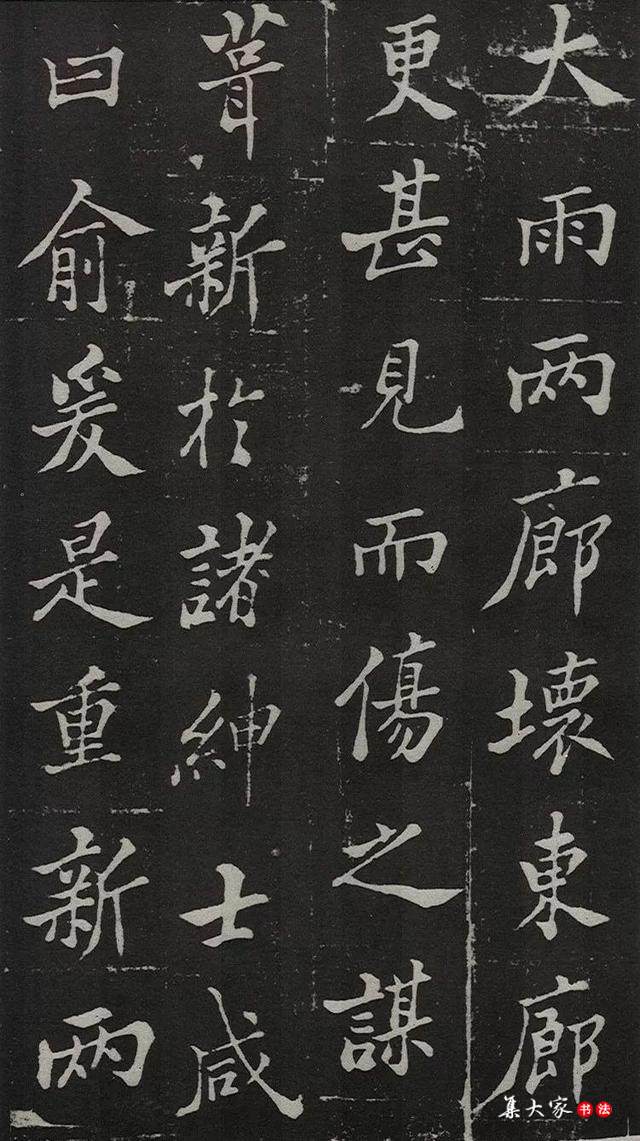 大雨两廊壞東廊
更甚見而傷之謀
葺新於諸紳士咸
曰俞爰是重新两
集大家书法